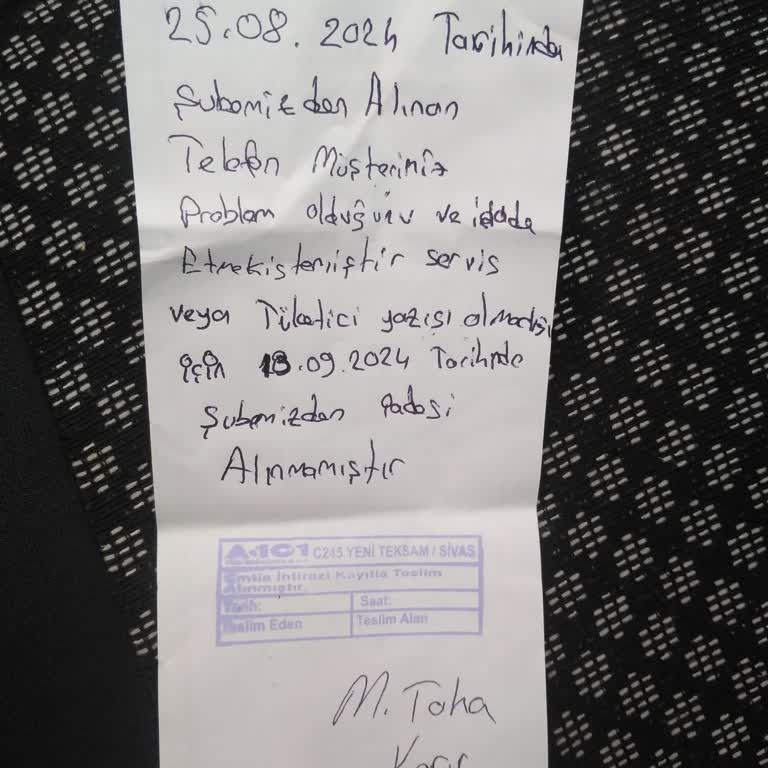 25.08.2024 Tarihinde
Şubemizden Alınan
Telefon Müşterimiz
Problem olduğunu ve iade
Etmek istemiştir servis
veya Tüketici yazısı olmadığı
için 18.09.2024 Tarihinde
Şubemizden iadesi
Alınmamıştır
A101 C245 YENİ TEKSAM / SİVAS
Emtia İhtirazi Kayıtla Teslim
Alınmıştır
Tarih: Saat:
Teslim Eden Teslim Alan
M. Taha